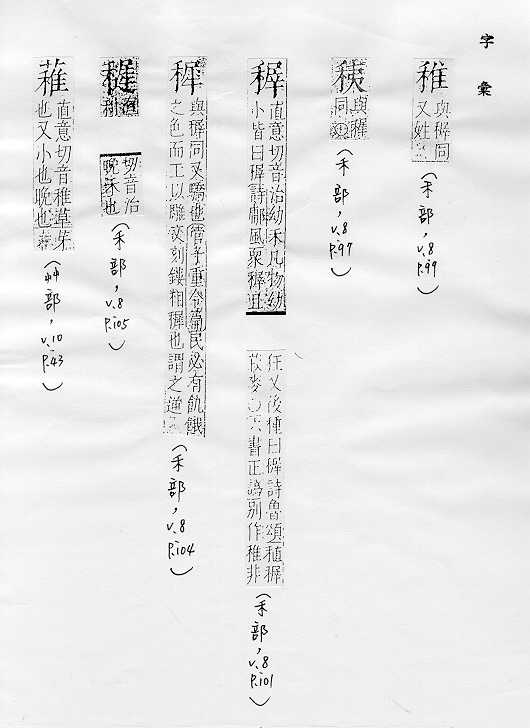 字彙
稚 與稺同
又姓
(禾部, v.8 P.99)
與稺
同
(禾部, v.8 P.97)
稺 直意切音治幼禾凡物幼
小皆曰稺詩鄘風眾稺且
狂又後種曰稺詩魯頌稙稺
菽麥 書正譌別作稚非
(禾部, v.8 P.101)
與稺同又驕也管子重令篇民必有飢餓
之色而工以雕文刻鏤相稺也謂之逆
(禾部, v.8 P.104)
切音治
晚禾也
(禾部, v.8 P.105)
直意切音稚草芽
也又小也晚也
(艸部, v.10 P.43)